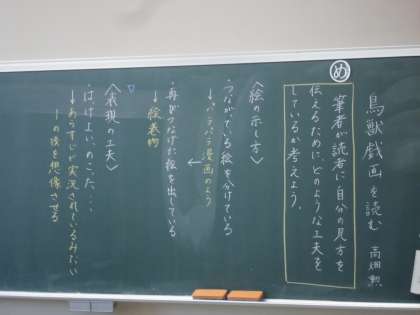 鳥獣戯画を読む 高畑勲
め
筆者が読者に自分の見方を
伝えるために、どのような工夫を
しているか考えよう。
〈絵の示し方〉
・つながっている絵を分けている
→パラパラ漫画のよう
・再びつなげた絵を出している
→絵巻物
〈表現の工夫〉
・はっけよい、のこった…
→あらすじが実況されているみたい
その後を想像させる